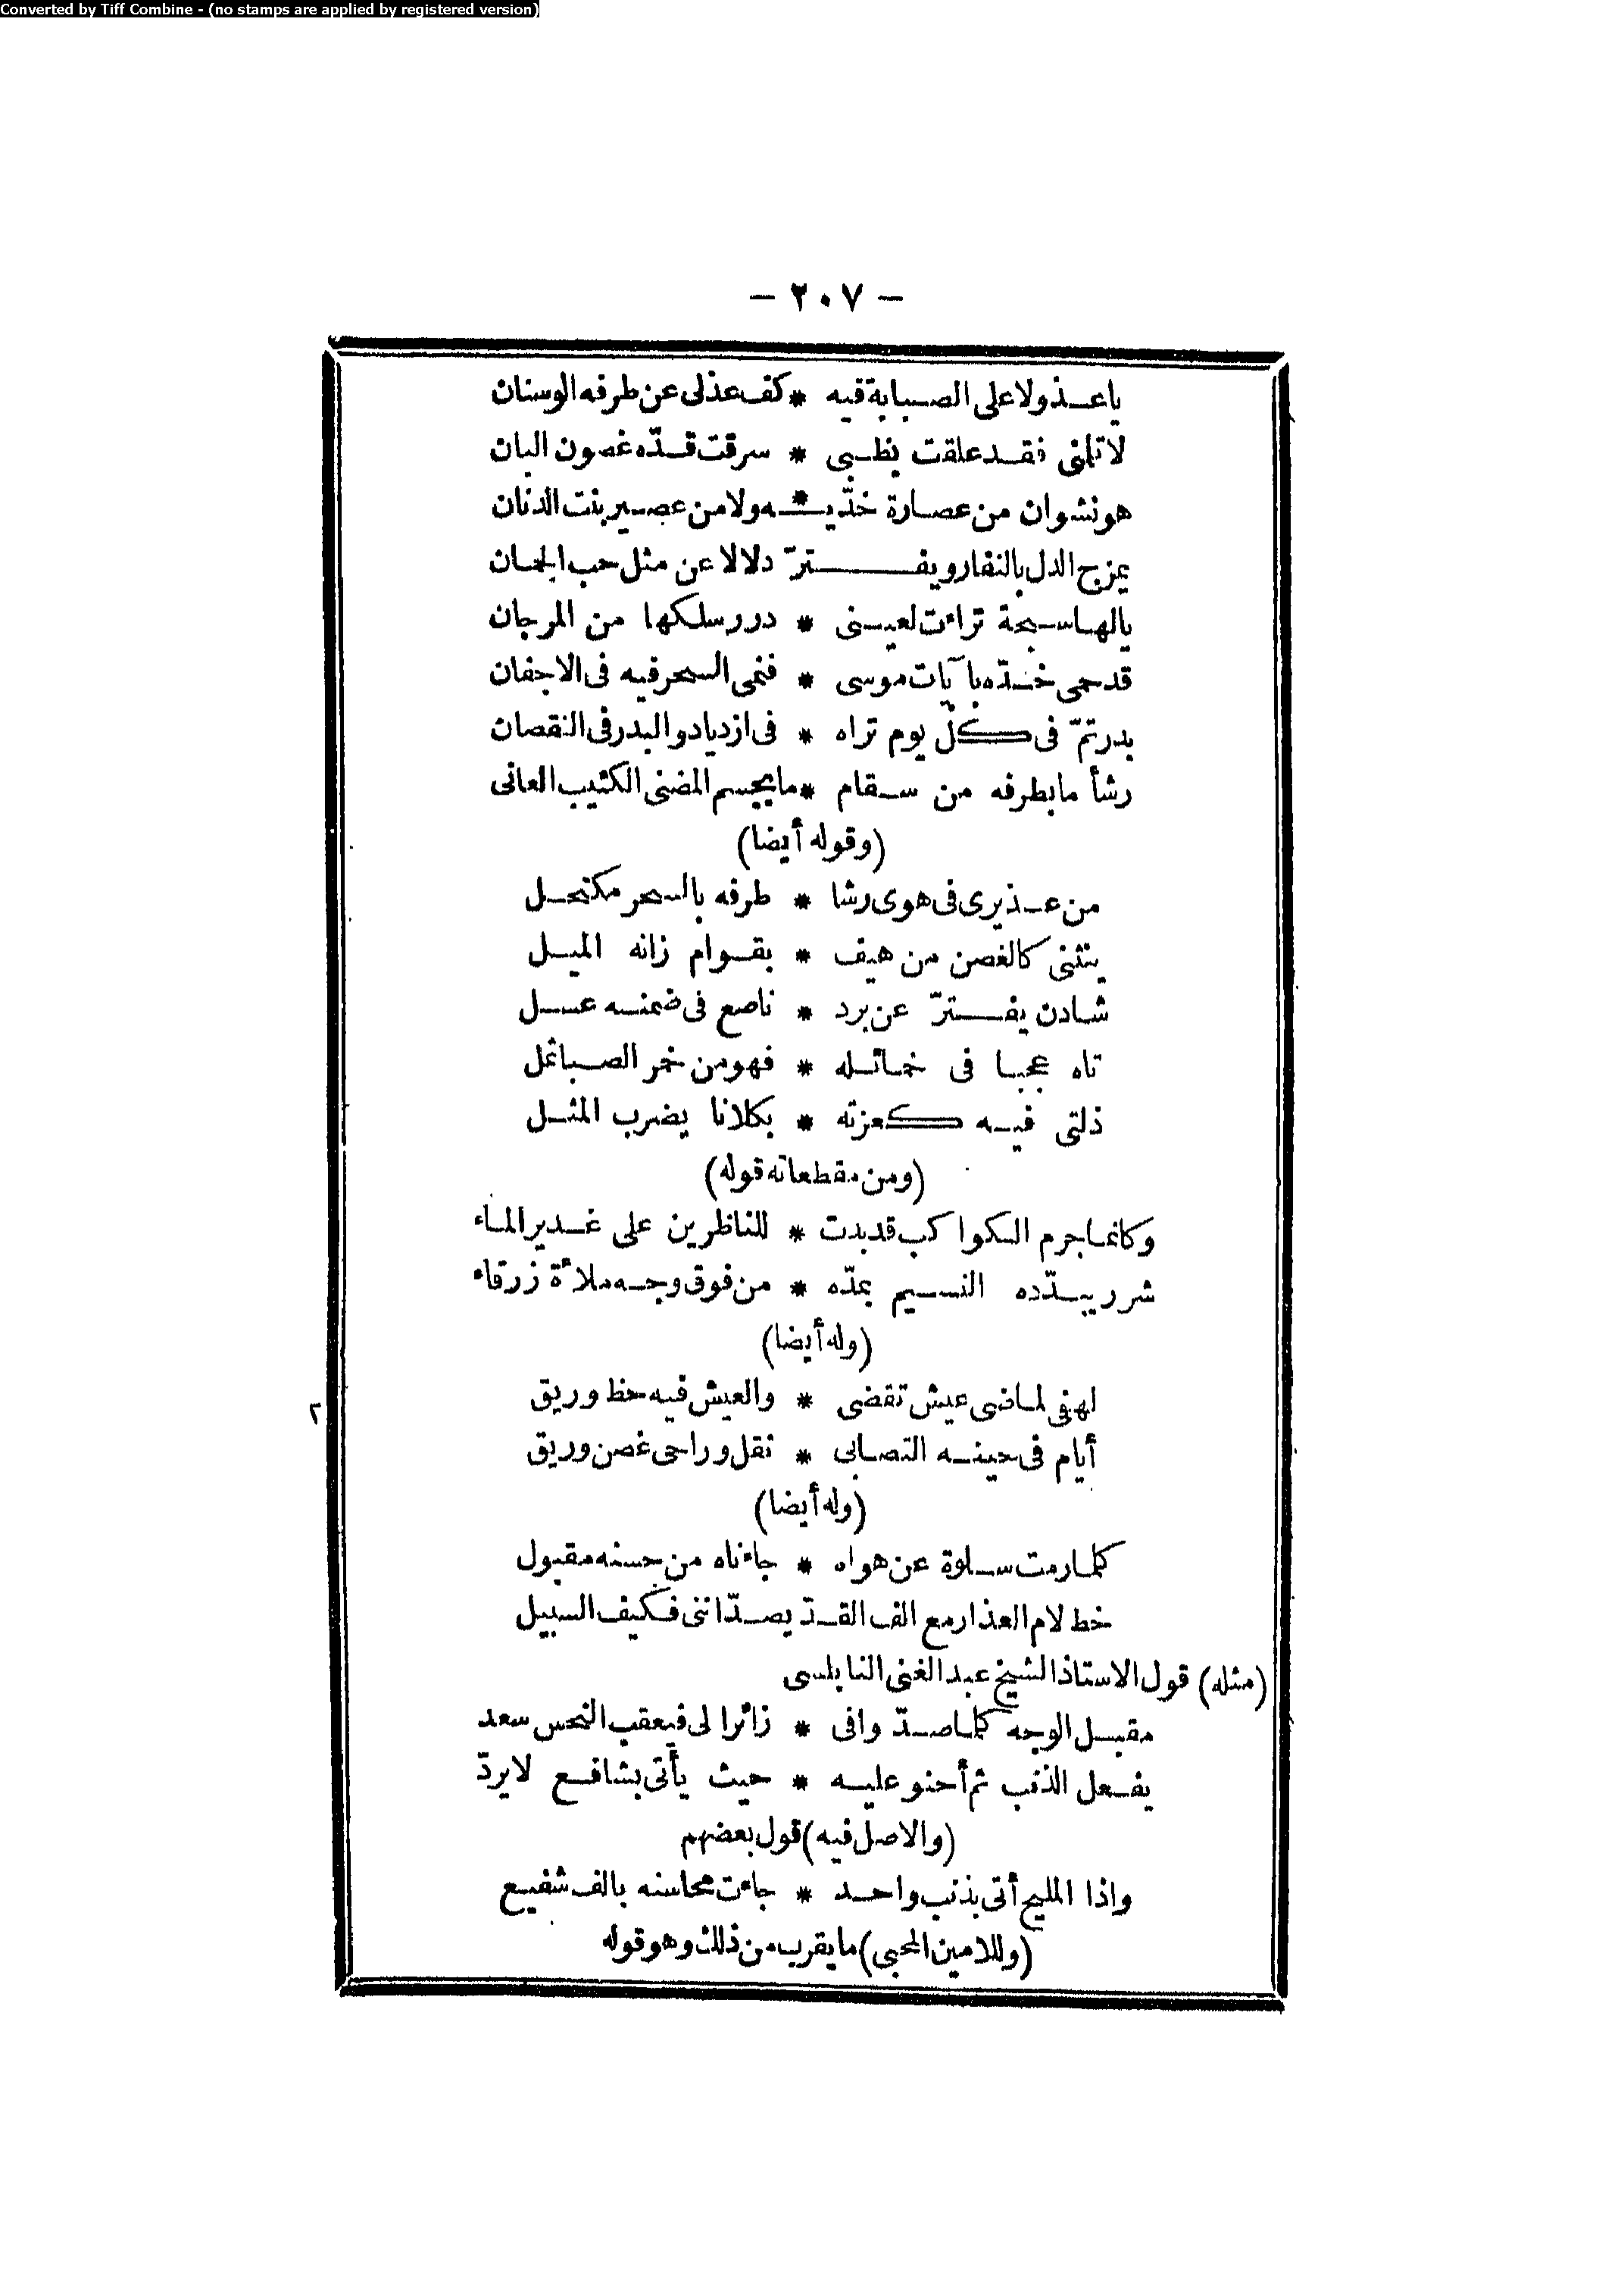 Converted by Tiff Combine - (no stamps are applied by registered version)
— ٢٠٧ —
ياعذولا على الصبابة فيه * كف عذلى عن طرفه الوسنان
لا تلمنى فقد علقت بظبى * سرقت قدّه غصون البان
هو نشوان من عصارة خدّيـ * ـه ولا من عصير بنت الدنان
يمزج الدل بالنفار ويفـتـرّ دلالا عن مثل حب الجمان
يالها سبحة تراءت لعينى * درر سلكها من المرجان
قد حمى خدّه بآيات موسى * فنمى السحر فيه فى الاجفان
بدر تمّ فى كلّ يوم تراه * فى ازدياد والبدر فى النقصان
رشأ ما بطرفه من سقام * ما بجسم المضنى الكئيب العانى
(وقوله أيضا)
من عذيرى فى هوى رشا * طرفه بالسحر مكتحل
ينثنى كالغصن من هيف * بقوام زانه الميل
شادن يفترّ عن برد * ناصع فى ضمنه عسل
تاه عجبا فى خمائله * فهو من خمر الصبا ثمل
ذلتى فيه كعزته * بكلانا يضرب المثل
(ومن مقطعاته قوله)
وكانما جرم الكواكب قد بدت * للناظرين على غدير الماء
شرر يبدّده النسيم بمدّه * من فوق وجه ملاأة زرقاء
(وله أيضا)
لهفى لماضى عيش تقضى * والعيش فيه حظ وريق
٢
أيام فى حينه التصابى * نقل وراحى غصن وريق
(وله أيضا)
كلما رمت سلوة عن هواه * جاءناه من حسنه مقبول
خط لام العذار مع الف القدّ يصدّاننى فكيف السبيل
(مثله) قول الاستاذ الشيخ عبد الغنى النابلسى
مقبل الوجه كلما صدّ وافى * زائرا لى فيعقب النحس سعد
يفعل الذنب ثم أحنو عليه * حيث يأتى بشافع لا يردّ
(والاصل فيه) قول بعضهم
واذا المليح أتى بذنب واحد * جاءت محاسنه بالف شفيع
(وللامين المحبى) ما يقرب من ذلك وهو قوله